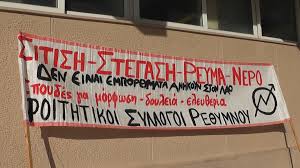 ΣΙΤΙΣΗ-ΣΤΕΓΑΣΗ-ΡΕΥΜΑ-ΝΕΡΟ
ΔΕΝ ΕΙΝΑΙ ΕΜΠΟΡΕΥΜΑΤΑ ΑΝΗΚΟΥΝ ΣΤΟΝ ΛΑΟ
πουδές για μόρφωση-δουλειά-ελευθερία
ΦΟΙΤΗΤΙΚΟΙ ΣΥΛΛΟΓΟΙ ΡΕΘΥΜΝΟΥ